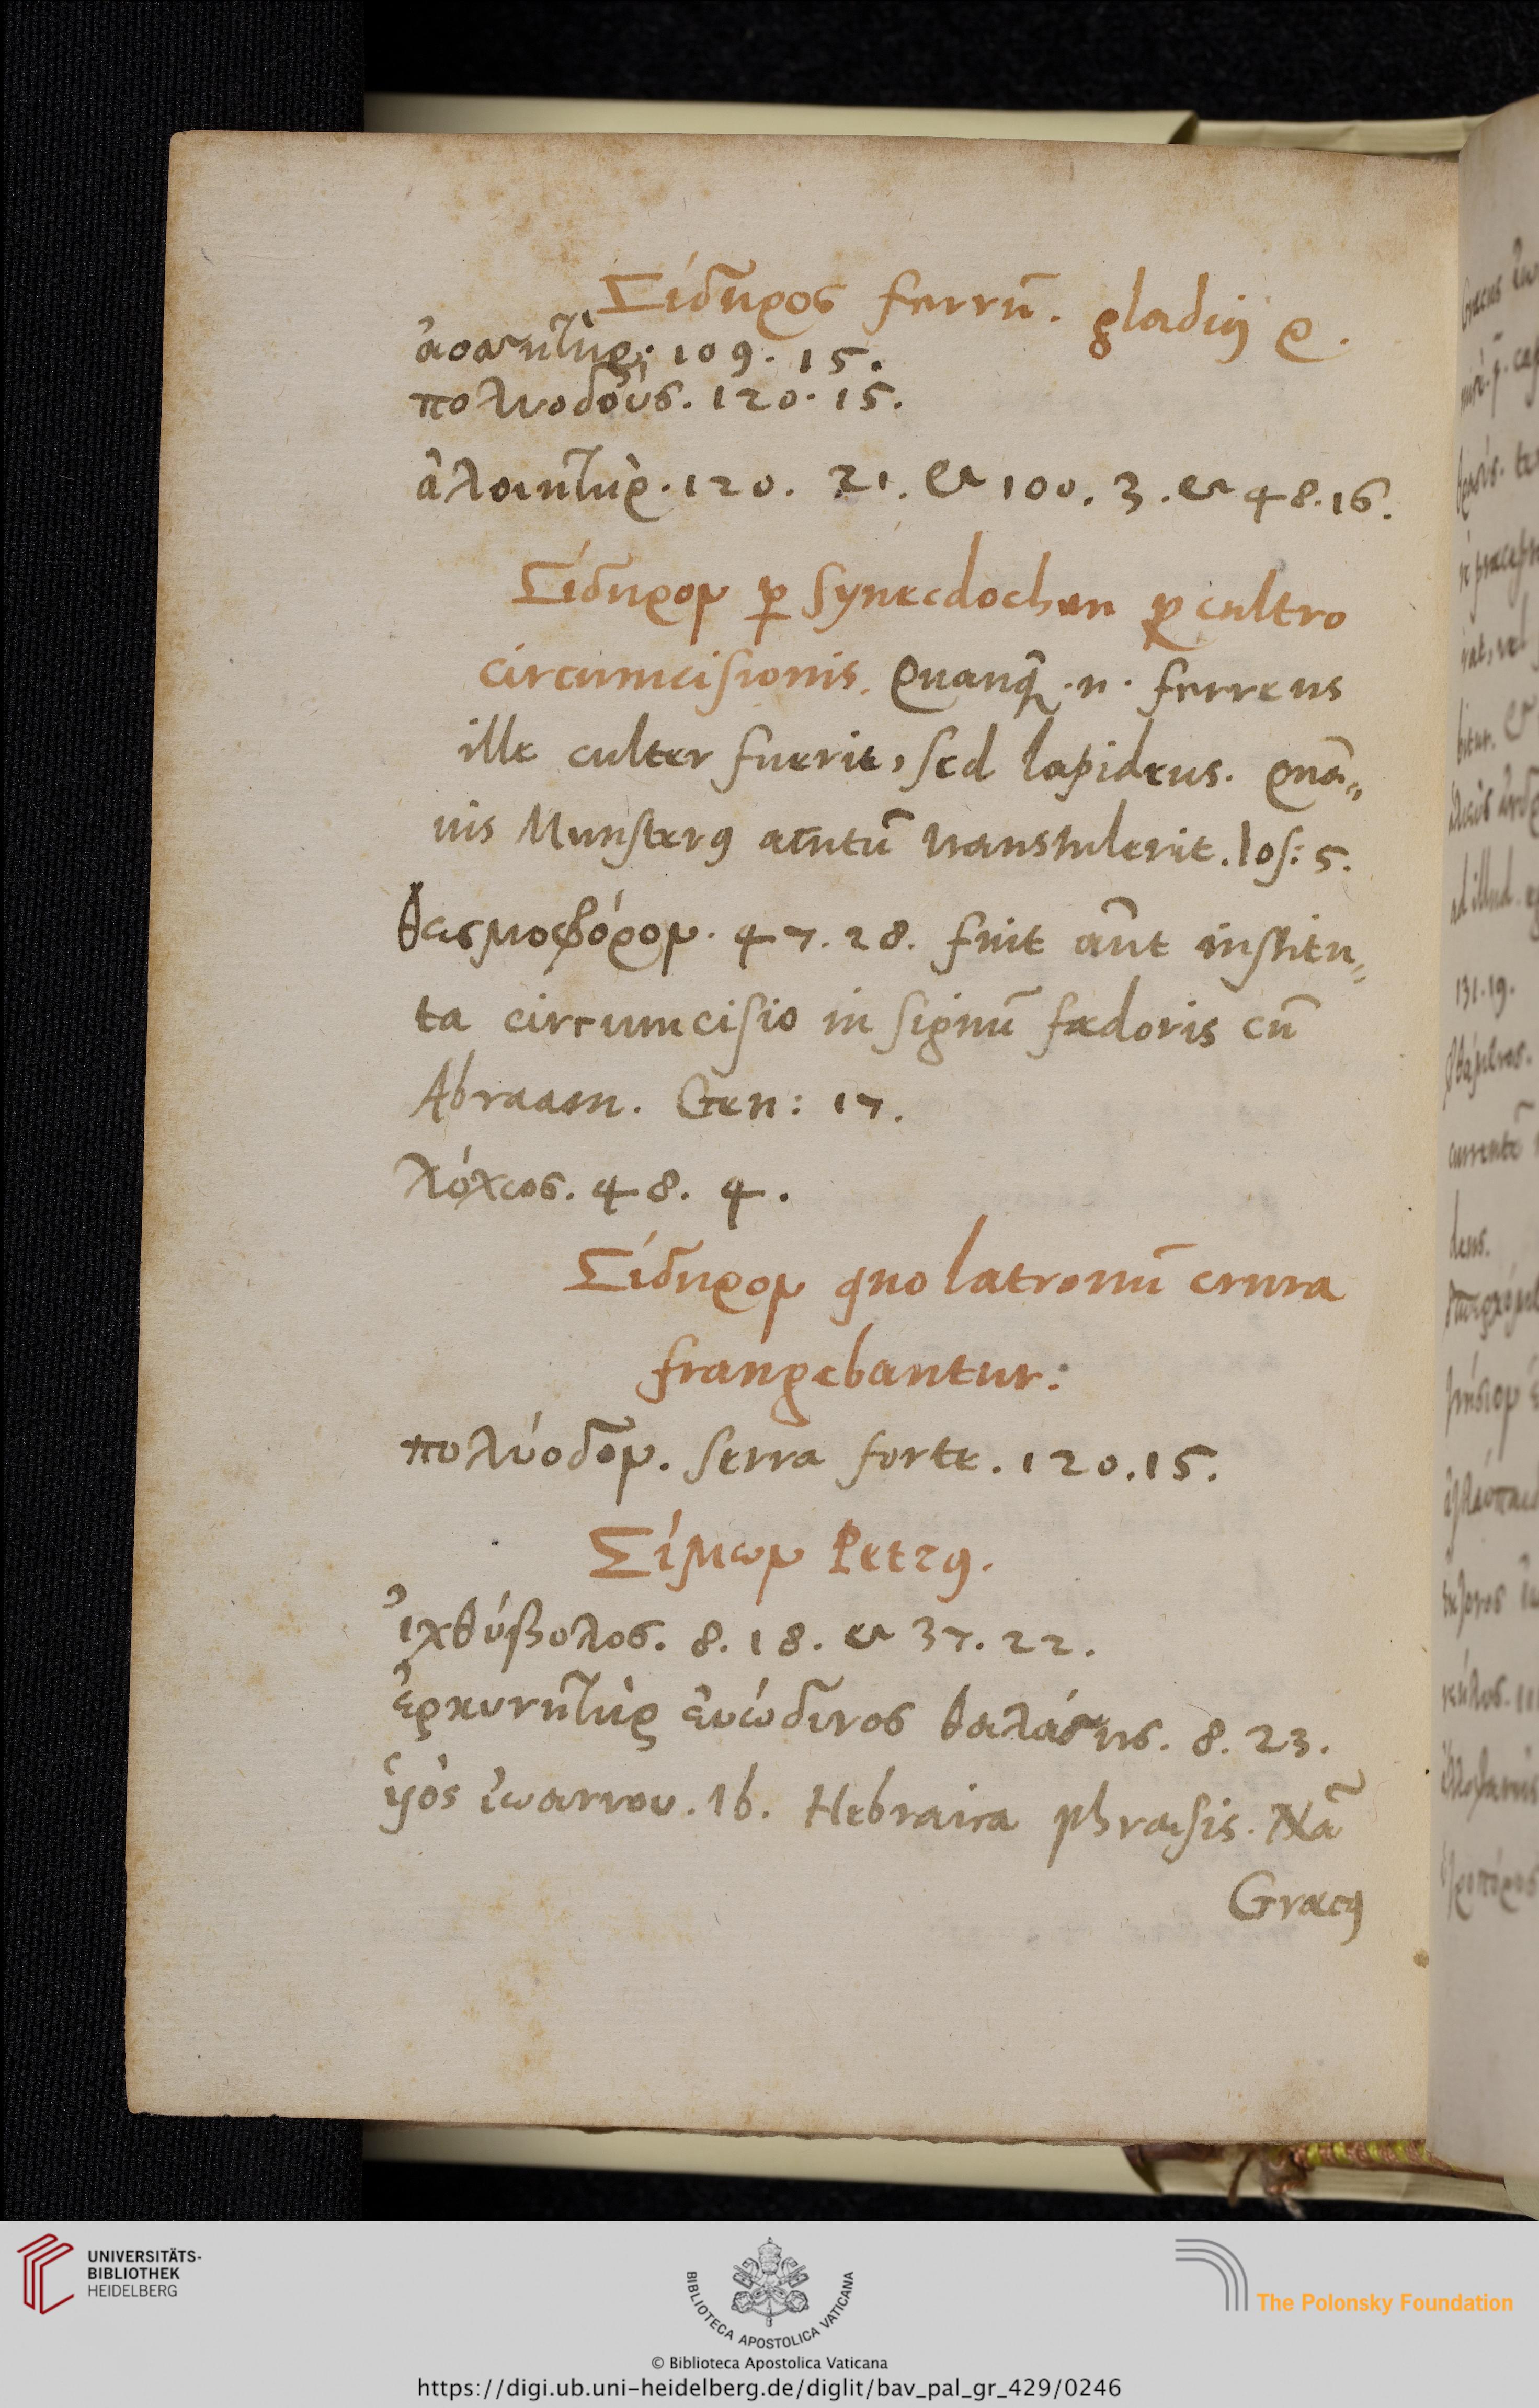 Σίδηρος ferrū. gladiꝰ
109. 15.
πολυοδούς. 120. 15.
ἀλοιητὴρ. 120. 21. et 100. 3. et 48. 16.
Σίδηρον ꝑ synecdochen ꝓ cultro
circumcisionis. Quanqꝫ .n. ferreus
ille culter fuerit, sed lapideus. Quā„
uis Munsterꝰ acutū transtulerit. Ios: 5.
θεσμοφόρον. 47. 28. fuit aūt institu„
ta circumcisio in signū fœderis cū
Abraam. Gen: 17.
λόχιος. 48. 4.
Σίδηρον quo latronū crura
frangebantur:
πολύοδον. serra forte. 120. 15.
Σίμων Petrꝰ.
ἰχθύβολος. 8. 18. et 37. 22.
εὐώδινος θαλάσσης. 8. 23.
ὑιὸς ἰωαννου. Ib. Hebraica phrasis. Nā
Græcꝰ
UNIVERSITÄTS-
BIBLIOTHEK
HEIDELBERG
BIBLIOTECA APOSTOLICA VATICANA
The Polonsky Foundation
© Biblioteca Apostolica Vaticana
https://digi.ub.uni-heidelberg.de/diglit/bav_pal_gr_429/0246